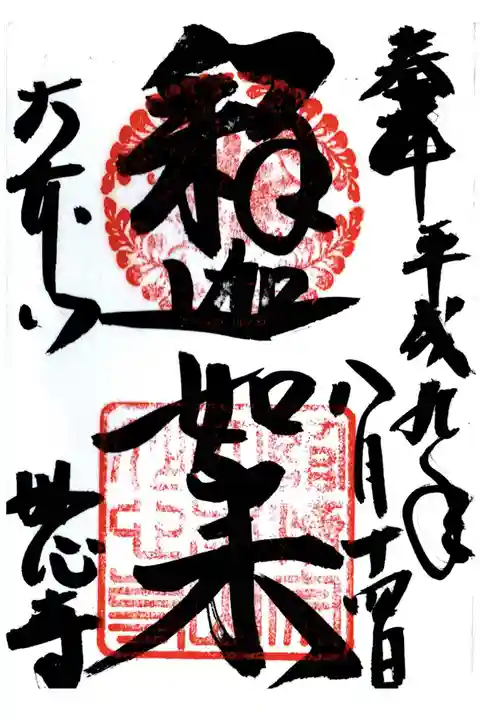 奉拝 平成九年
八月十四日
釈迦如来
大本山
妙心寺